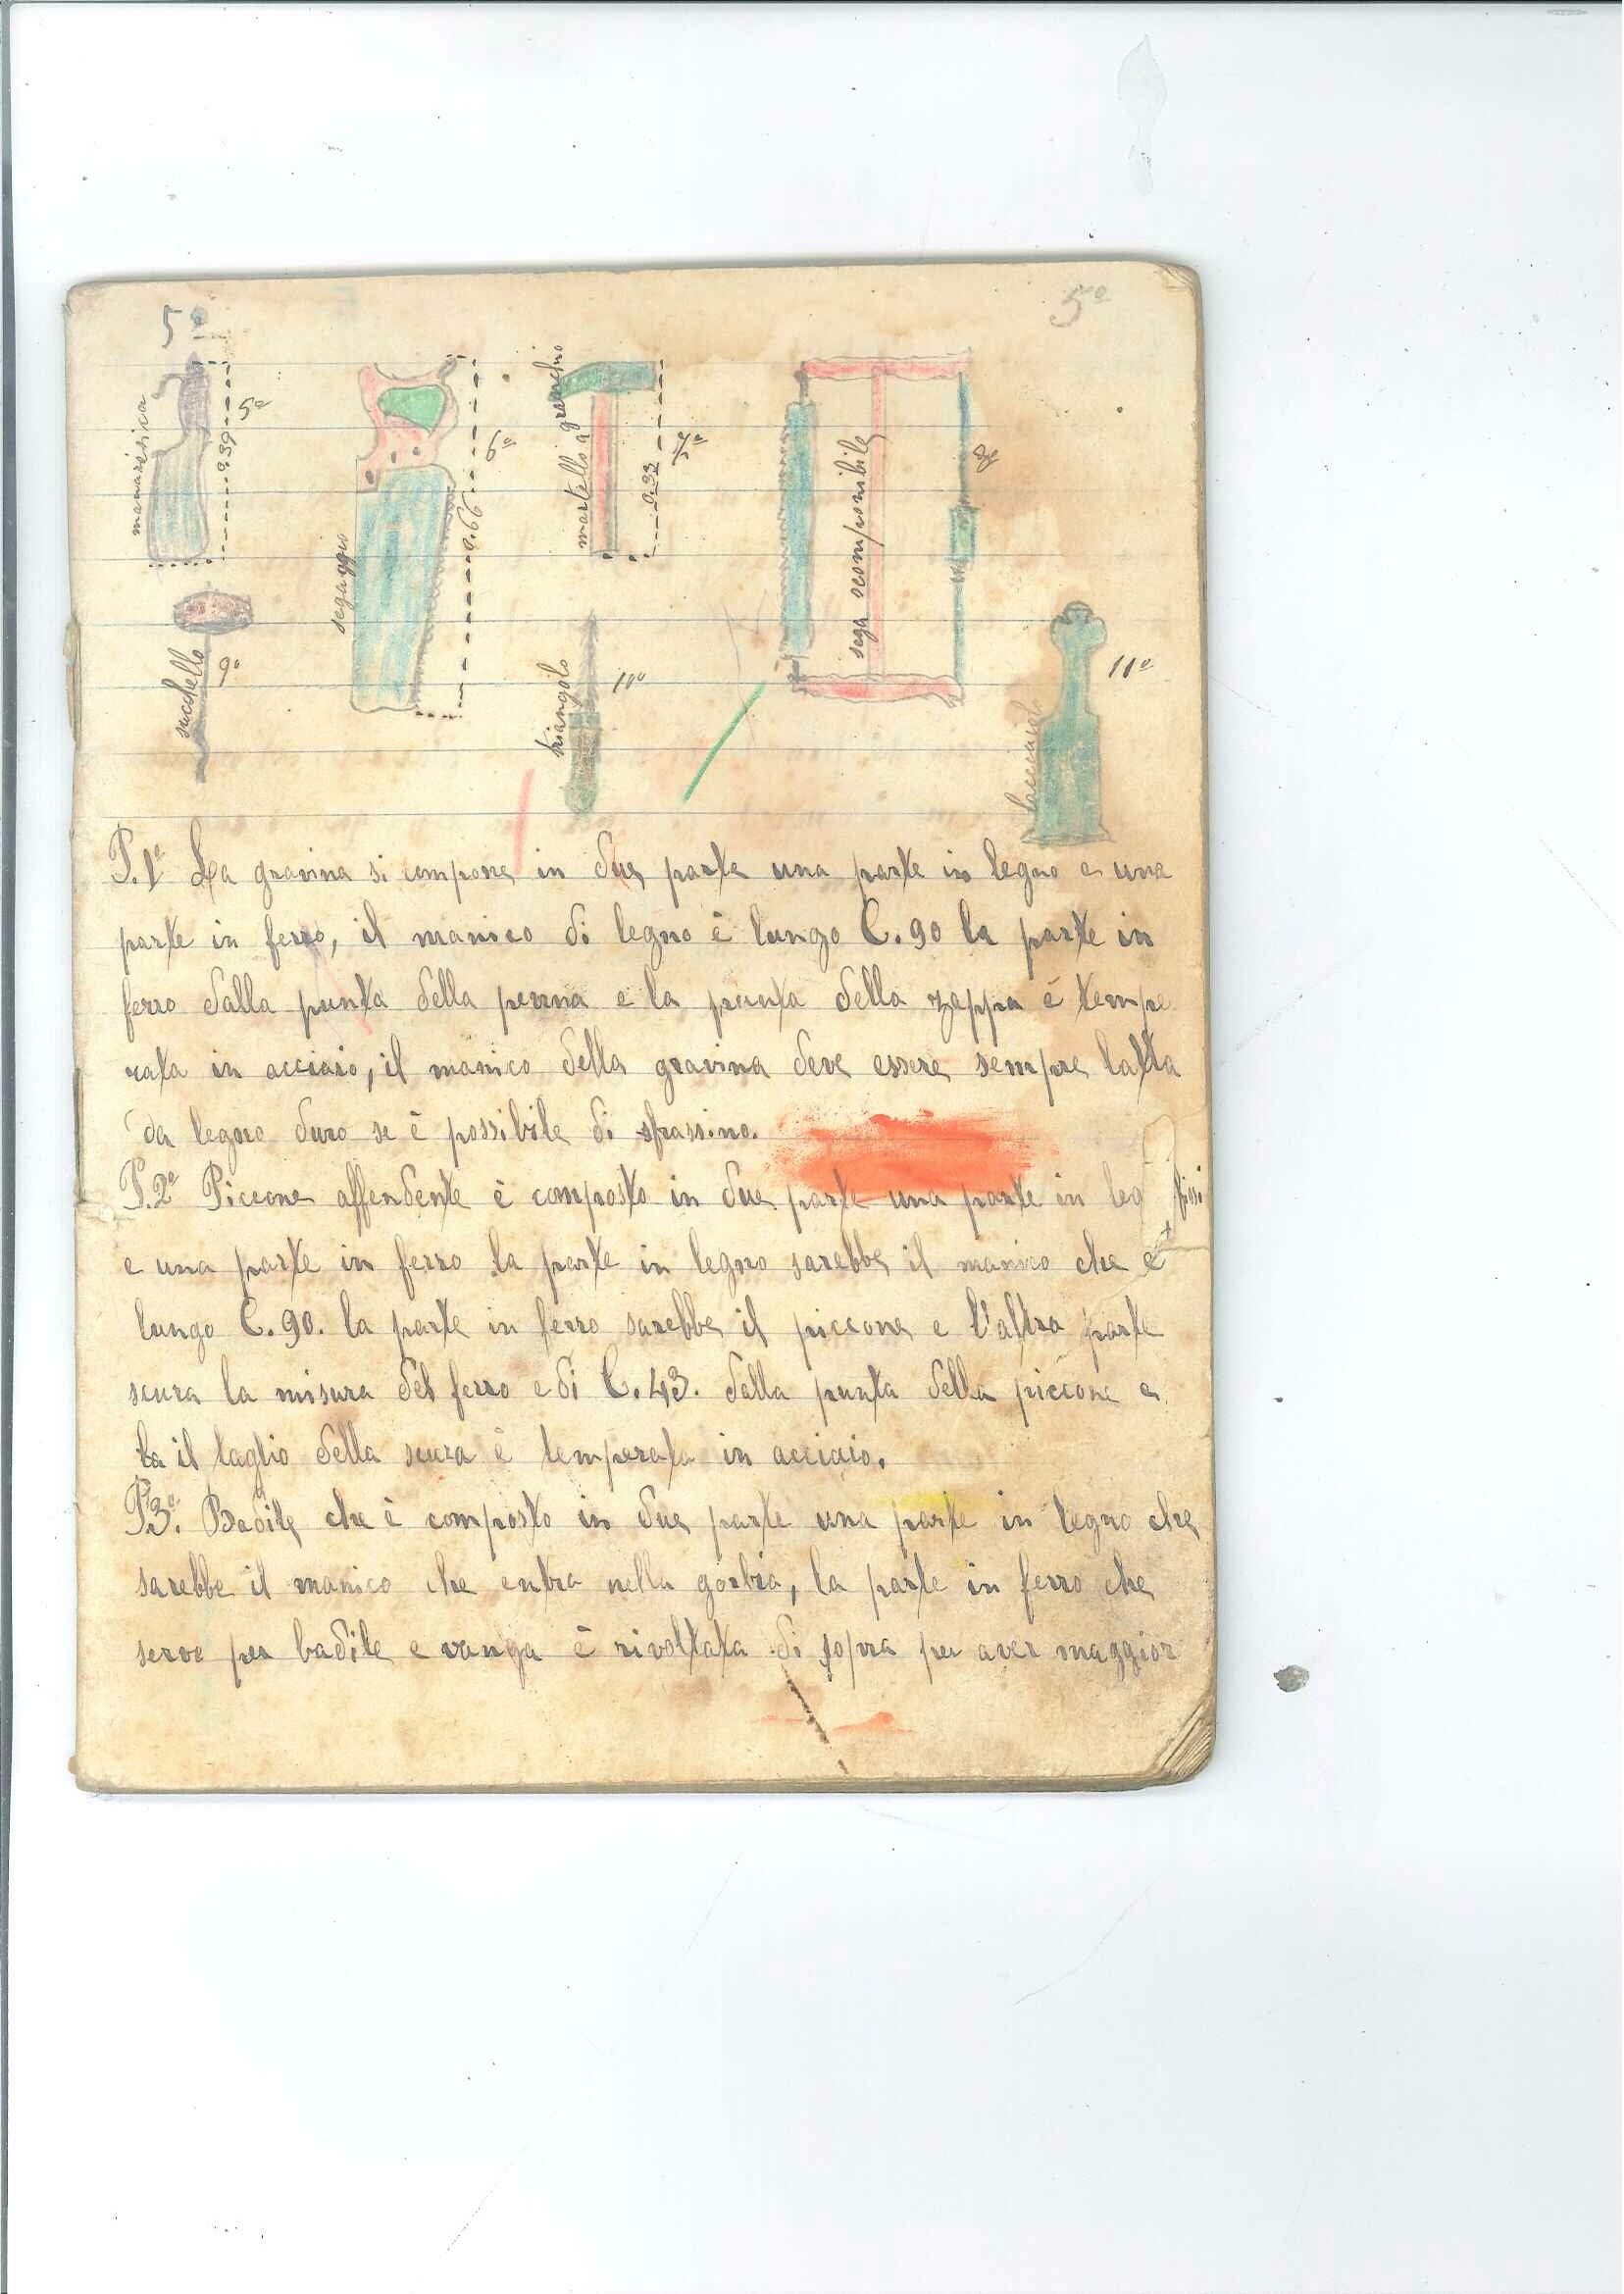 5º
5º
manaressica
0.39
5º
segaggio
0.66
6º
martello a granchio
0.33
7º
sega scomponibile
8º
succhello
9º
triangolo
11º
11º
P.1º La gravina si compone in due parte una parte in legno e una
parte in ferro, il manico di legno è lungo C.90 la parte in
ferro dalla punta della penna e la punta della zappa è tempe
rata in acciaio, il manico della gravina deve essere sempre latta
da legno duro se è possibile di frassino.
P.2º Piccone affendente è composto in due parte una parte in leg
e una parte in ferro la parte in legno sarebbe il manico che è
lungo C.90. la parte in ferro sarebbe il piccone e l'altra parte
scura la misura del ferro e di C.43. dalla punta della piccone e
la il taglio della scura è temperata in acciaio.
P.3º. Badile che è composto in due parte una parte in legno che
sarebbe il manico che entra nella gorbia, la parte in ferro che
serve per badile e vanga è rivoltata di sopra per aver maggior